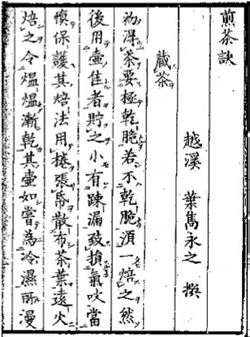 煎茶訣
越溪　葉雋永之　撰
藏茶
初得茶要極乾脆若不乾脆湏一焙之然
後用壺佳者貯之小有踈漏致損氣味當
慎保護其焙法用捲張帋散布茶葉遠火
焙之令熅熅漸乾其壺如嘗為冷濕所漫